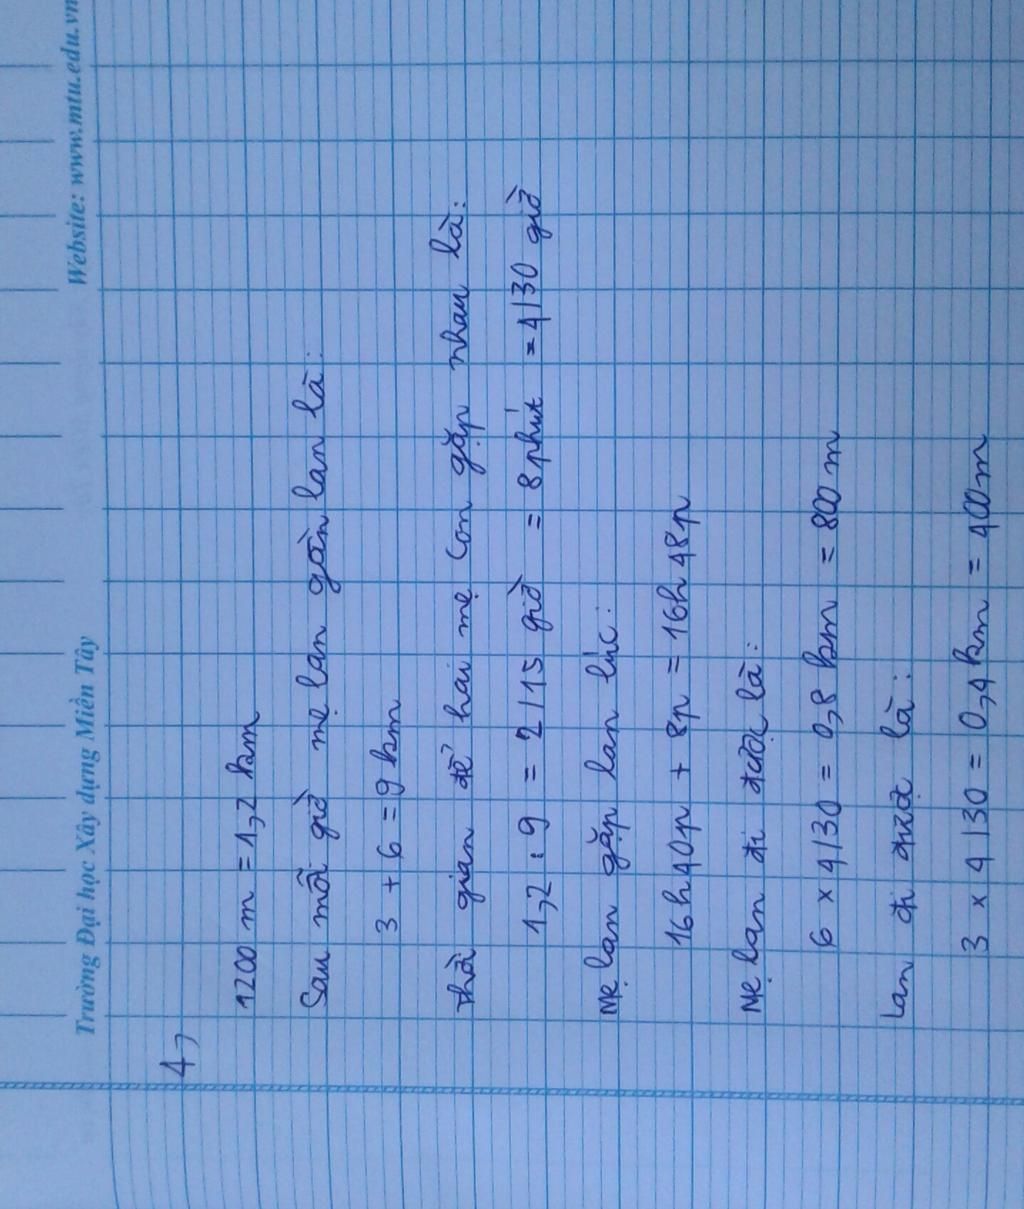 Trường Đại học Xây dựng Miền Tây Website: www.mtu.edu.vn
1,
1200 m = 1,2 km
Sau mỗi giờ mẹ lan gần lan là:
3 + 6 = 9 km
thời gian để hai mẹ con gặp nhau là:
1,2 : 9 = 2/15 giờ = 8 phút = 4/30 giờ
Mẹ lan gặp lan lúc:
16h40p + 8p = 16h48p
Mẹ lan đi được là:
6 x 4/30 = 0,8 km = 800 m
lan đi được là:
3 x 4/30 = 0,4 km = 400 m